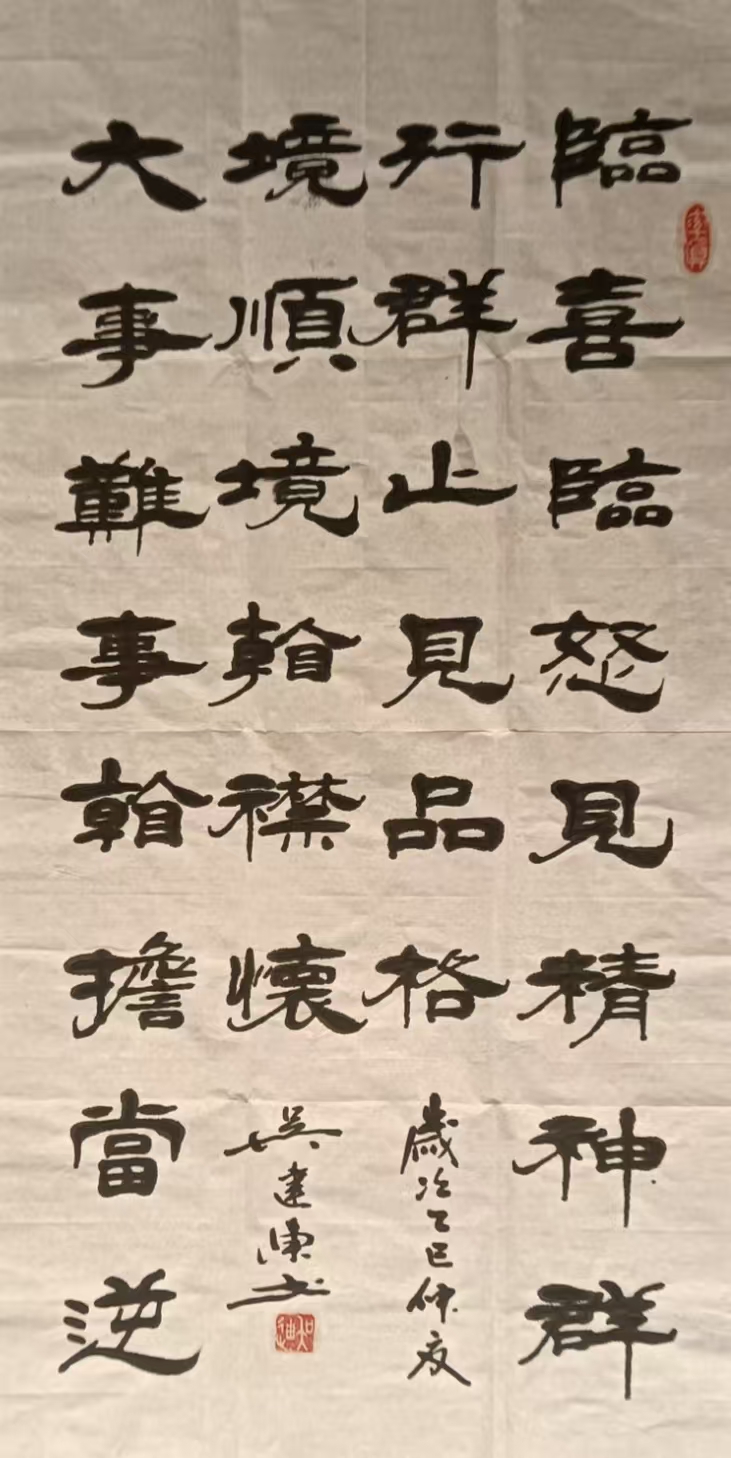 臨喜臨怒見精神群
行群止見品格
歲次乙巳仲夏
大事難事看擔當逆
境順境看襟懷
吳建書